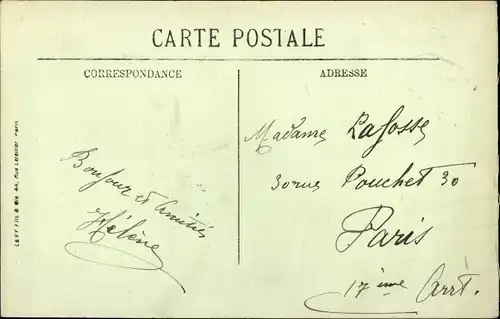 CARTE POSTALE
CORRESPONDANCE
ADRESSE
LEVY FILS & Cie 44, Rue Letellier Paris
Bonjour et Amitiés
Hélène
Madame Lafosse
30 rue Pouchet 30
Paris
17ième Arrt.